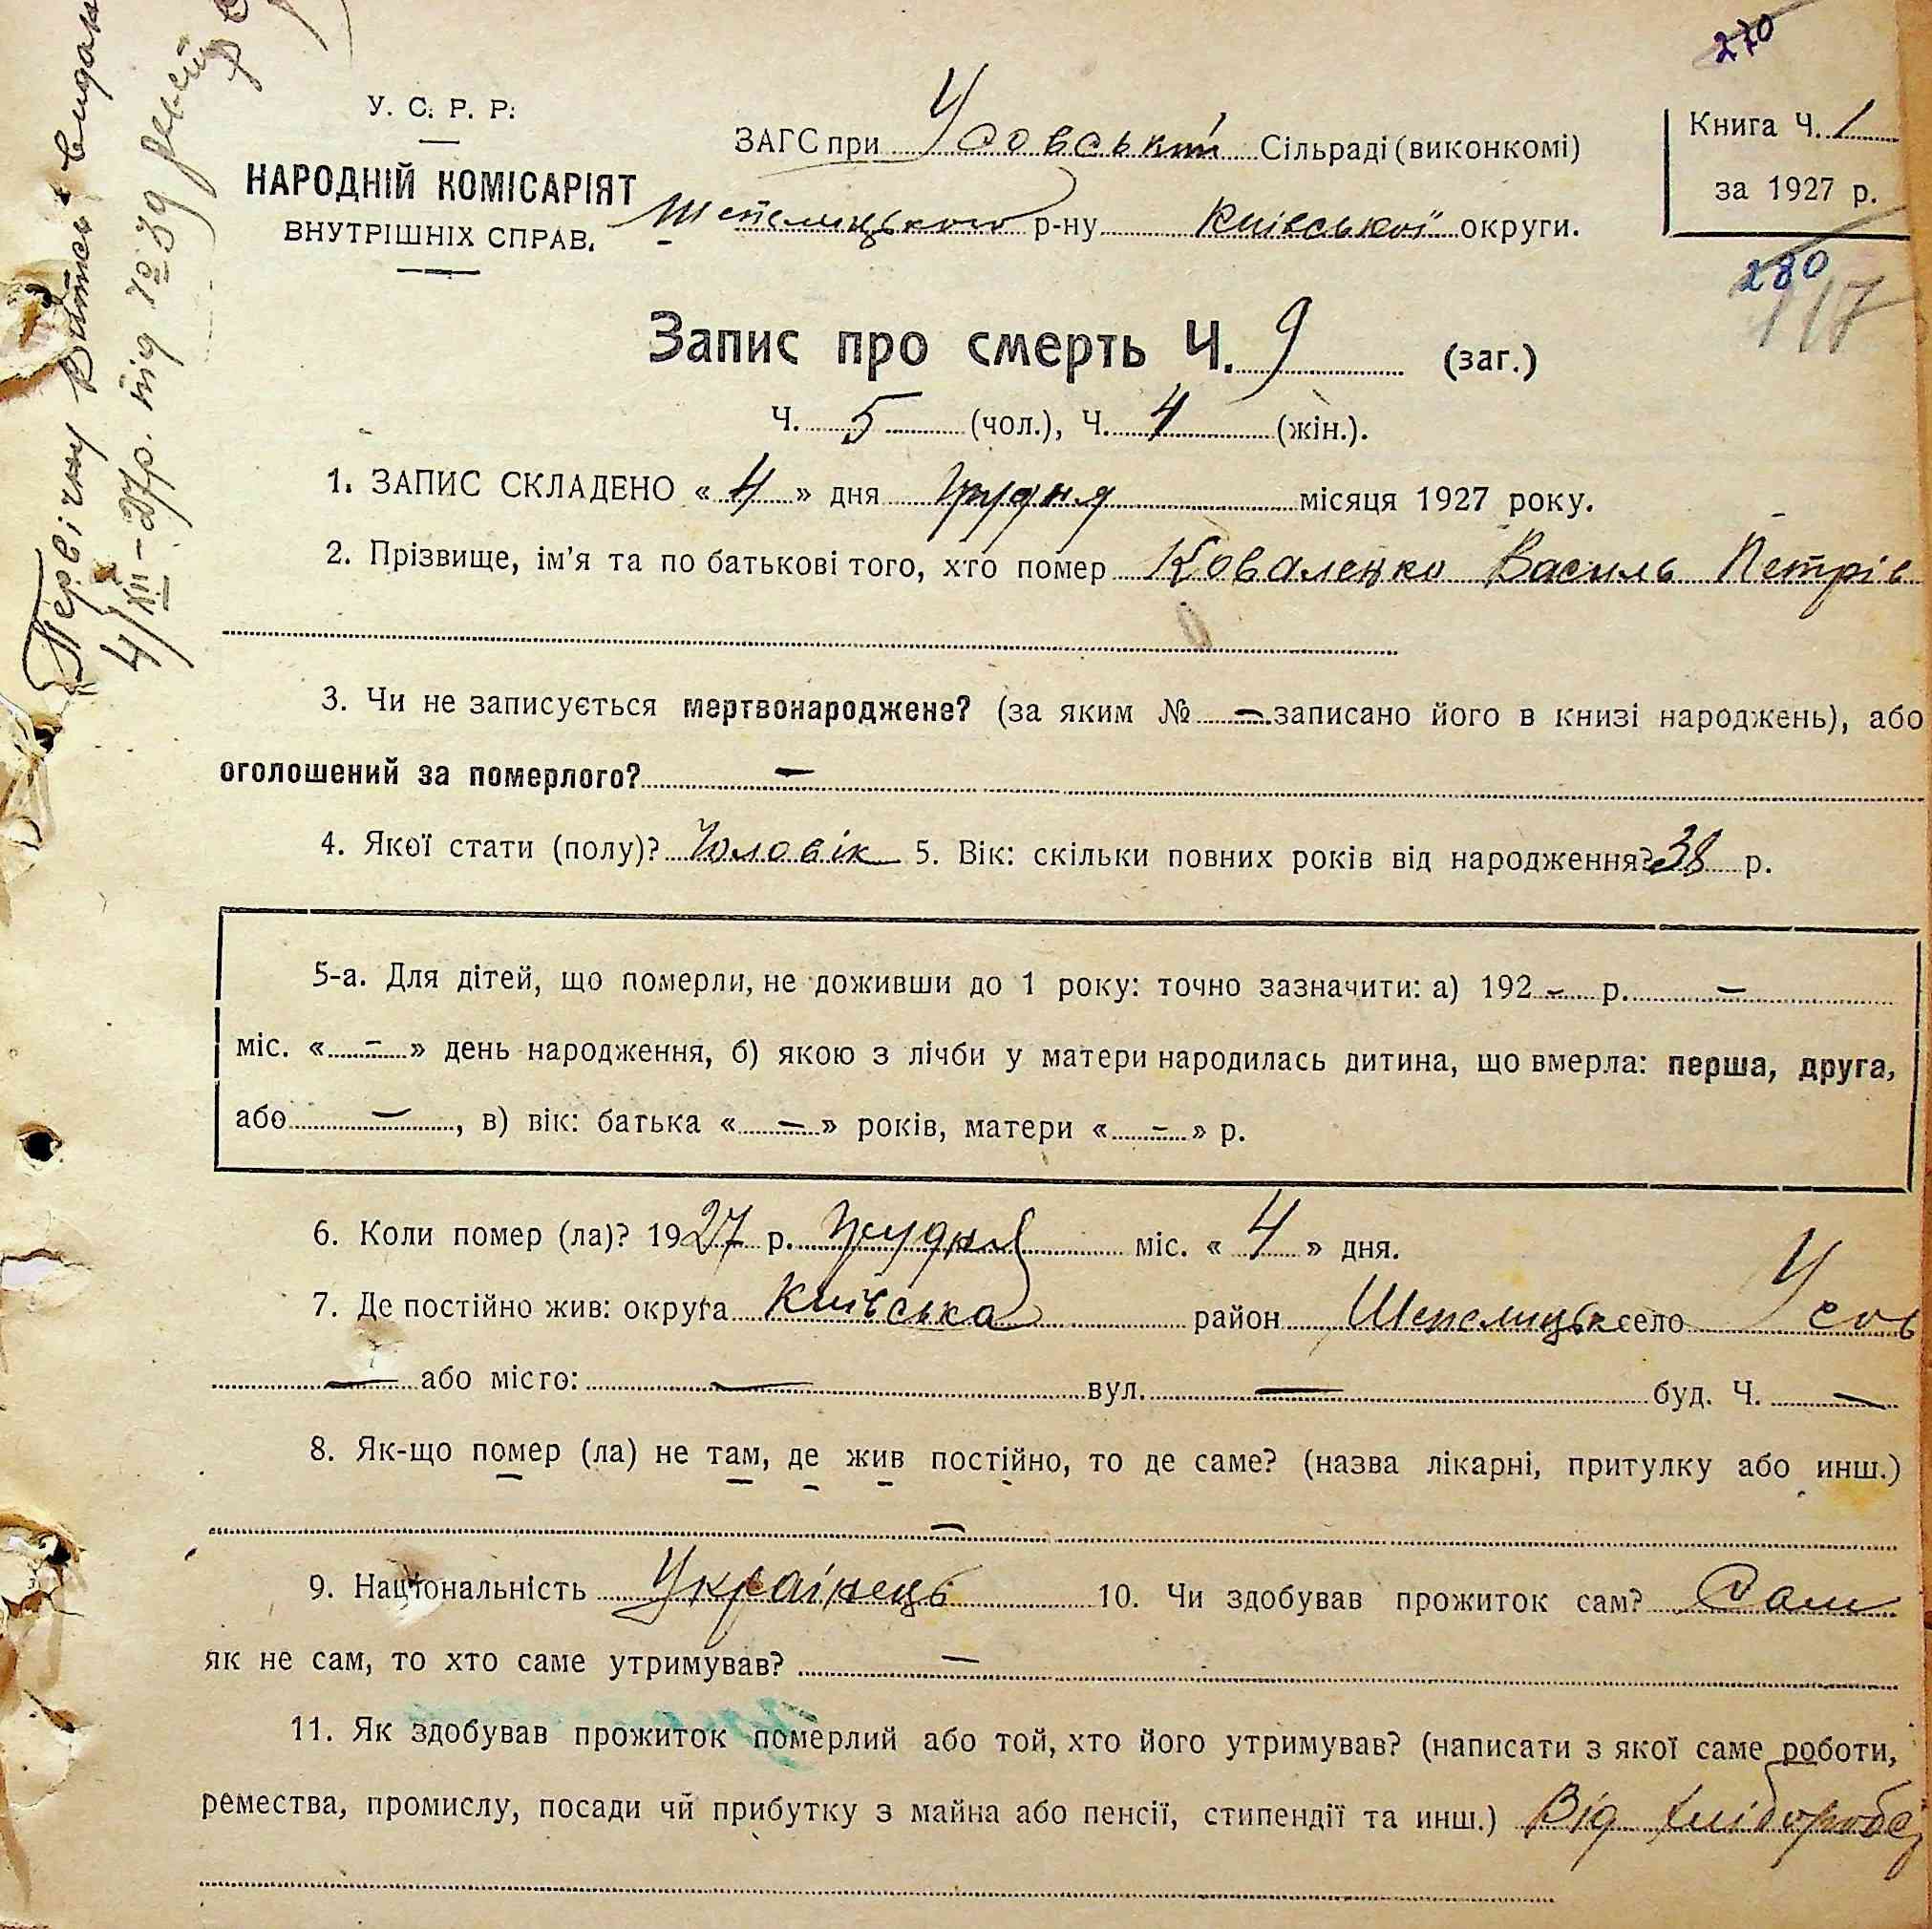 270
У. С. Р. Р.
НАРОДНІЙ КОМІСАРІЯТ
ВНУТРІШНІХ СПРАВ.
ЗАГС при Усовській Сільраді (виконкомі)
Шепелицького р-ну Київської округи.
Книга Ч. 1
за 1927 р.
280
117
Запис про смерть Ч. 9 (заг.)
Ч. 5 (чол.), Ч. 4 (жін.).
1. ЗАПИС СКЛАДЕНО « 4 » дня грудня місяця 1927 року.
2. Прізвище, ім'я та по батькові того, хто помер Коваленко Василь Петрів
3. Чи не записується мертвонароджене? (за яким № — записано його в книзі народжень), або
оголошений за померлого? —
4. Якої стати (полу)? Чоловік 5. Вік: скільки повних років від народження? 38 р.
5-а. Для дітей, що померли, не доживши до 1 року: точно зазначити: а) 192 – р. –
міс. « – » день народження, б) якою з лічби у матери народилась дитина, що вмерла: перша, друга,
або —, в) вік: батька « – » років, матери « – » р.
6. Коли помер (ла)? 1927 р. грудня міс. « 4 » дня.
7. Де постійно жив: округа Київська район Шепелицьк село Усов
— або місто: — вул. — буд. Ч. —
8. Як-що помер (ла) не там, де жив постійно, то де саме? (назва лікарні, притулку або инш.)
—
9. Національність Українець 10. Чи здобував прожиток сам? Сам
як не сам, то хто саме утримував? —
11. Як здобував прожиток померлий або той, хто його утримував? (написати з якої саме роботи,
ремества, промислу, посади чи прибутку з майна або пенсії, стипендії та инш.) Від хлібороб
Первічну Витпісь видан
4/XII-27р. під № 39